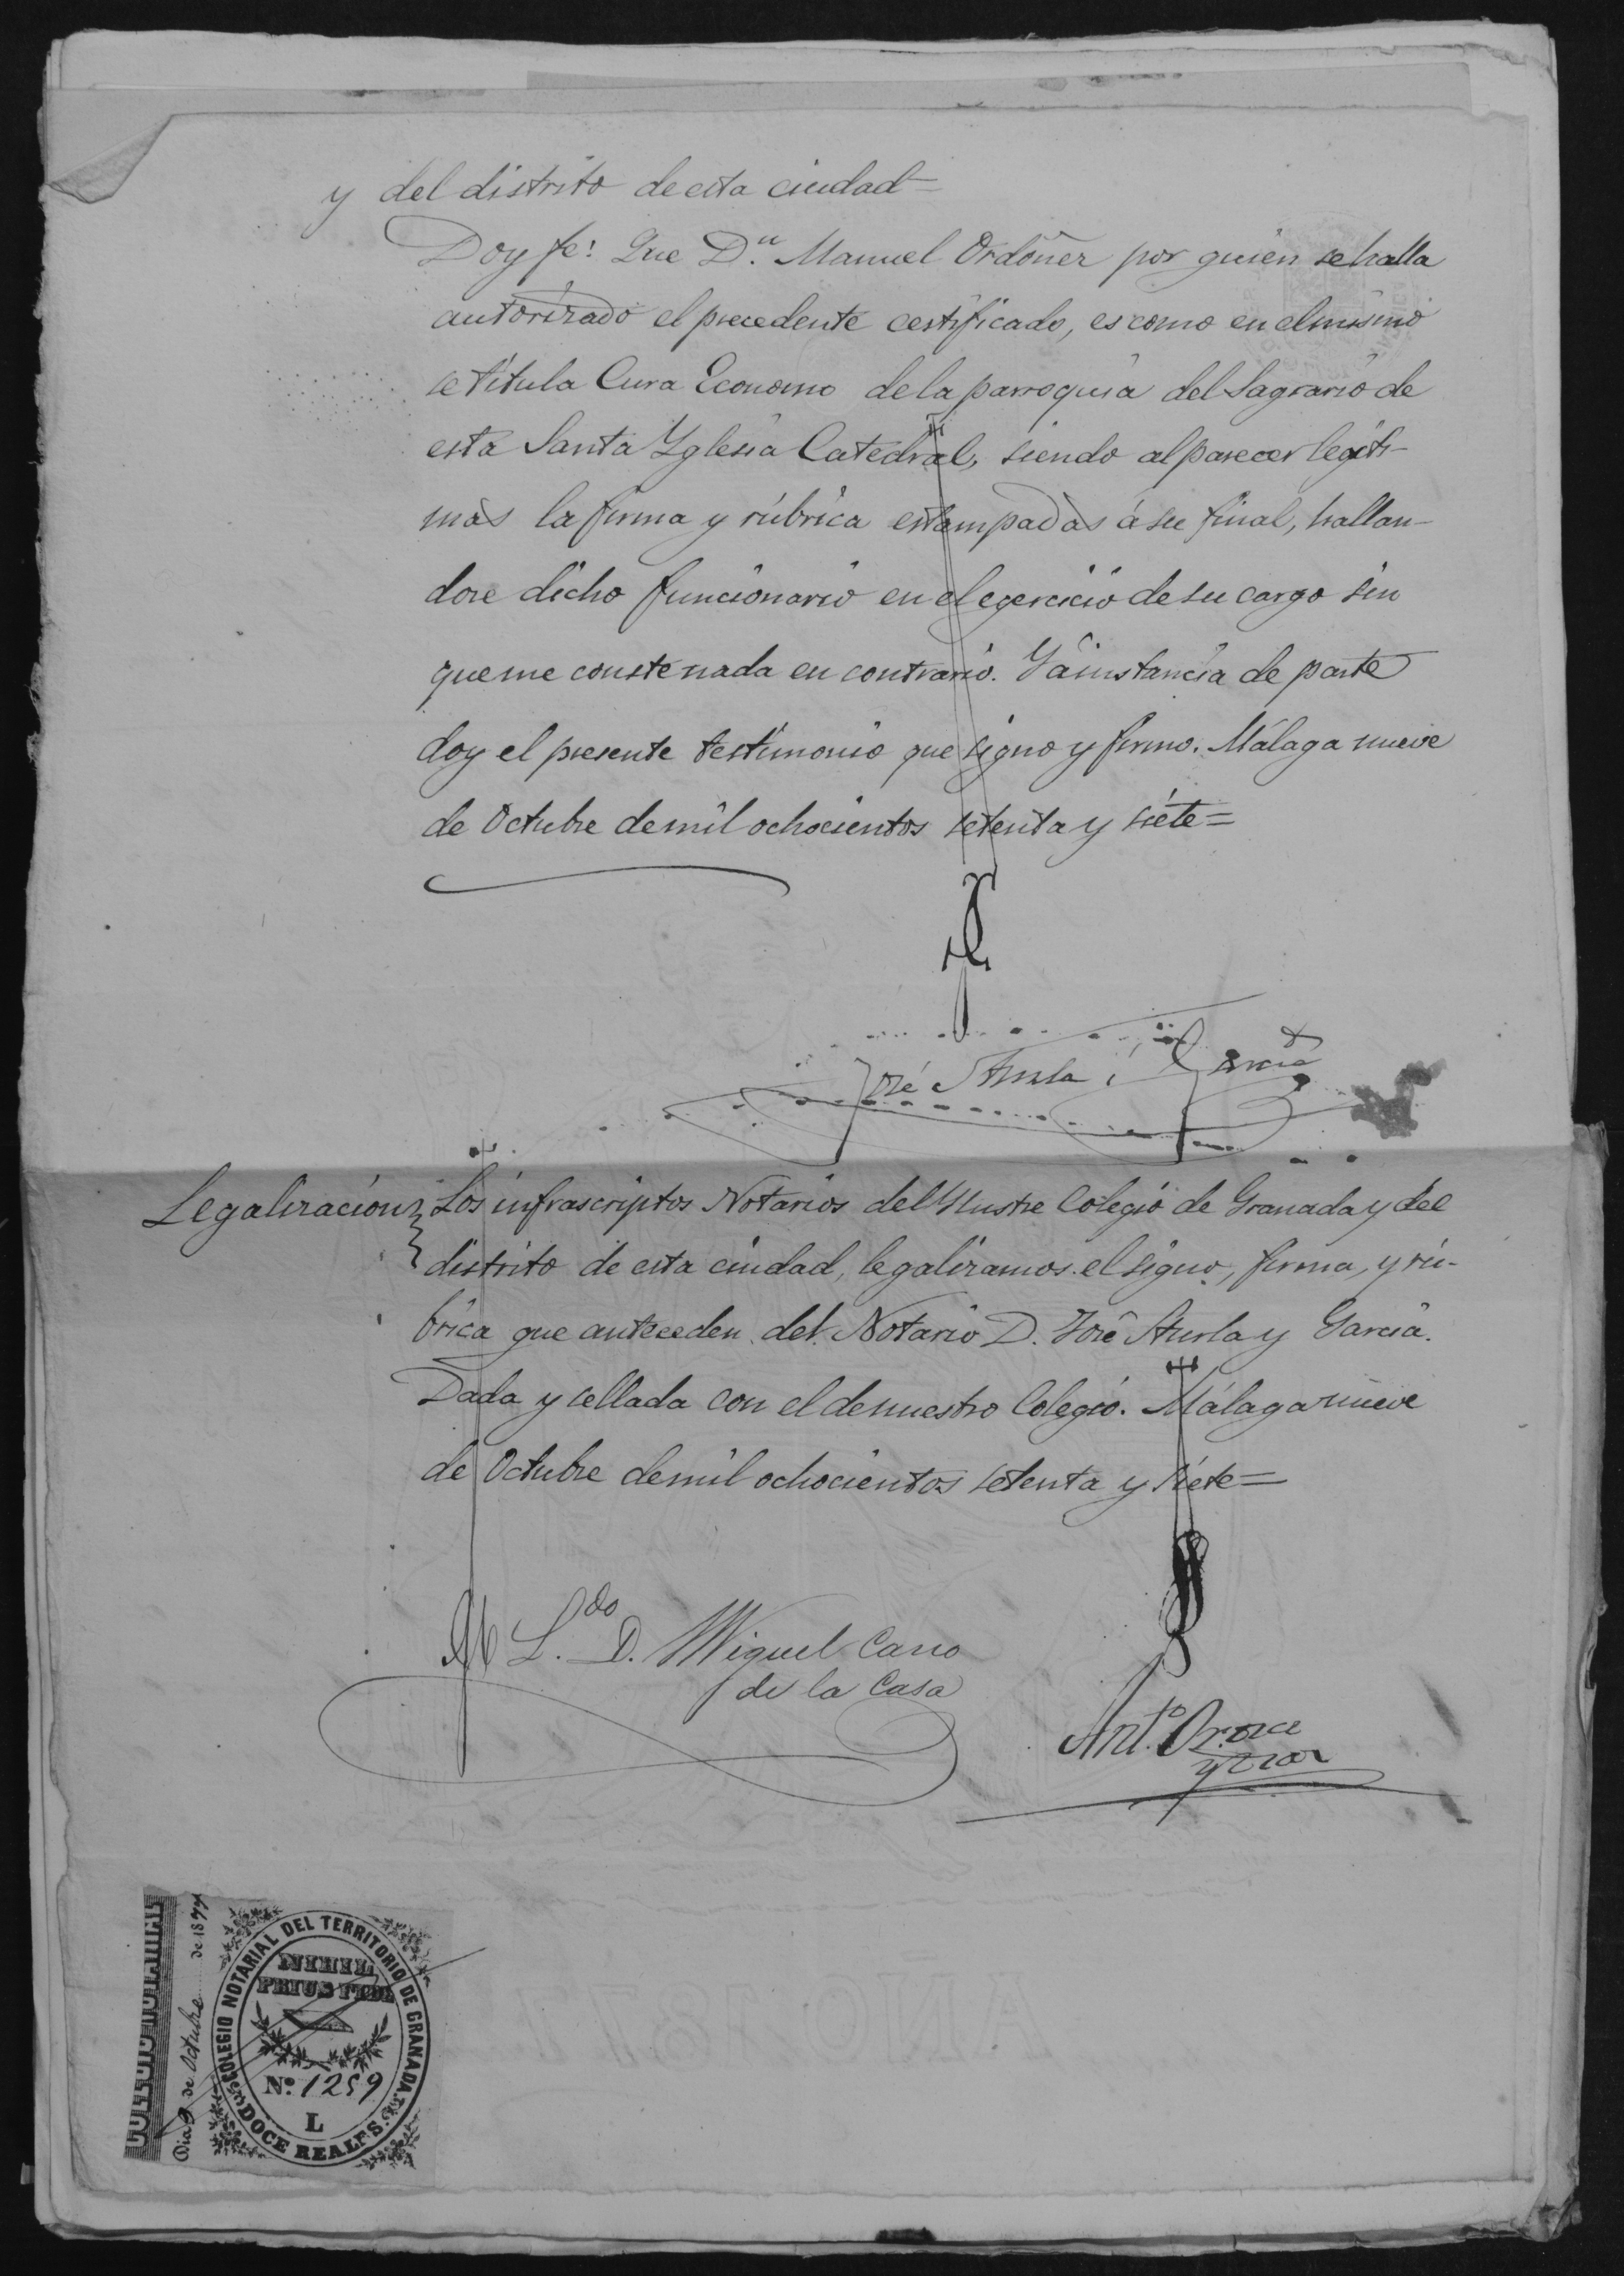 y del distrito de esta ciudad=
Doy fe: Que D.n Manuel Ordoñez por quien se halla
autorizado el precedente certificado, es como en el mismo
se titula Cura Economo de la parroquia del Sagrario de
esta Santa Yglesia Catedral, siendo al parecer legiti-
mas la firma y rúbrica estampadas á su final, hallan-
dose dicho funcionario en el egercicio de su cargo sin
que me conste nada en contrario. Y á instancia de parte
doy el presente testimonio que signo y firmo. Málaga nueve
de Octubre de mil ochocientos setenta y siete=
José Sturla y Garcia
Legalizacion Los infrascriptos Notarios del Ylustre Colegio de Granada y del
distrito de esta ciudad, legalizamos el signo, firma, y rú-
brica que anteceden del Notario D. José Sturla y Garcia.
Dada y sellada con el de nuestro Colegio. Málaga nueve
de Octubre de mil ochocientos setenta y siete=
L.do D. Miguel Cano
de la Casa
Ant.o
COLEGIO NOTARIAL
Dia 9 de Octubre de 1877
COLEGIO NOTARIAL DEL TERRITORIO DE GRANADA
NIHIL
PRIUS FIDE
No. 1259
L
DOCE REALES.